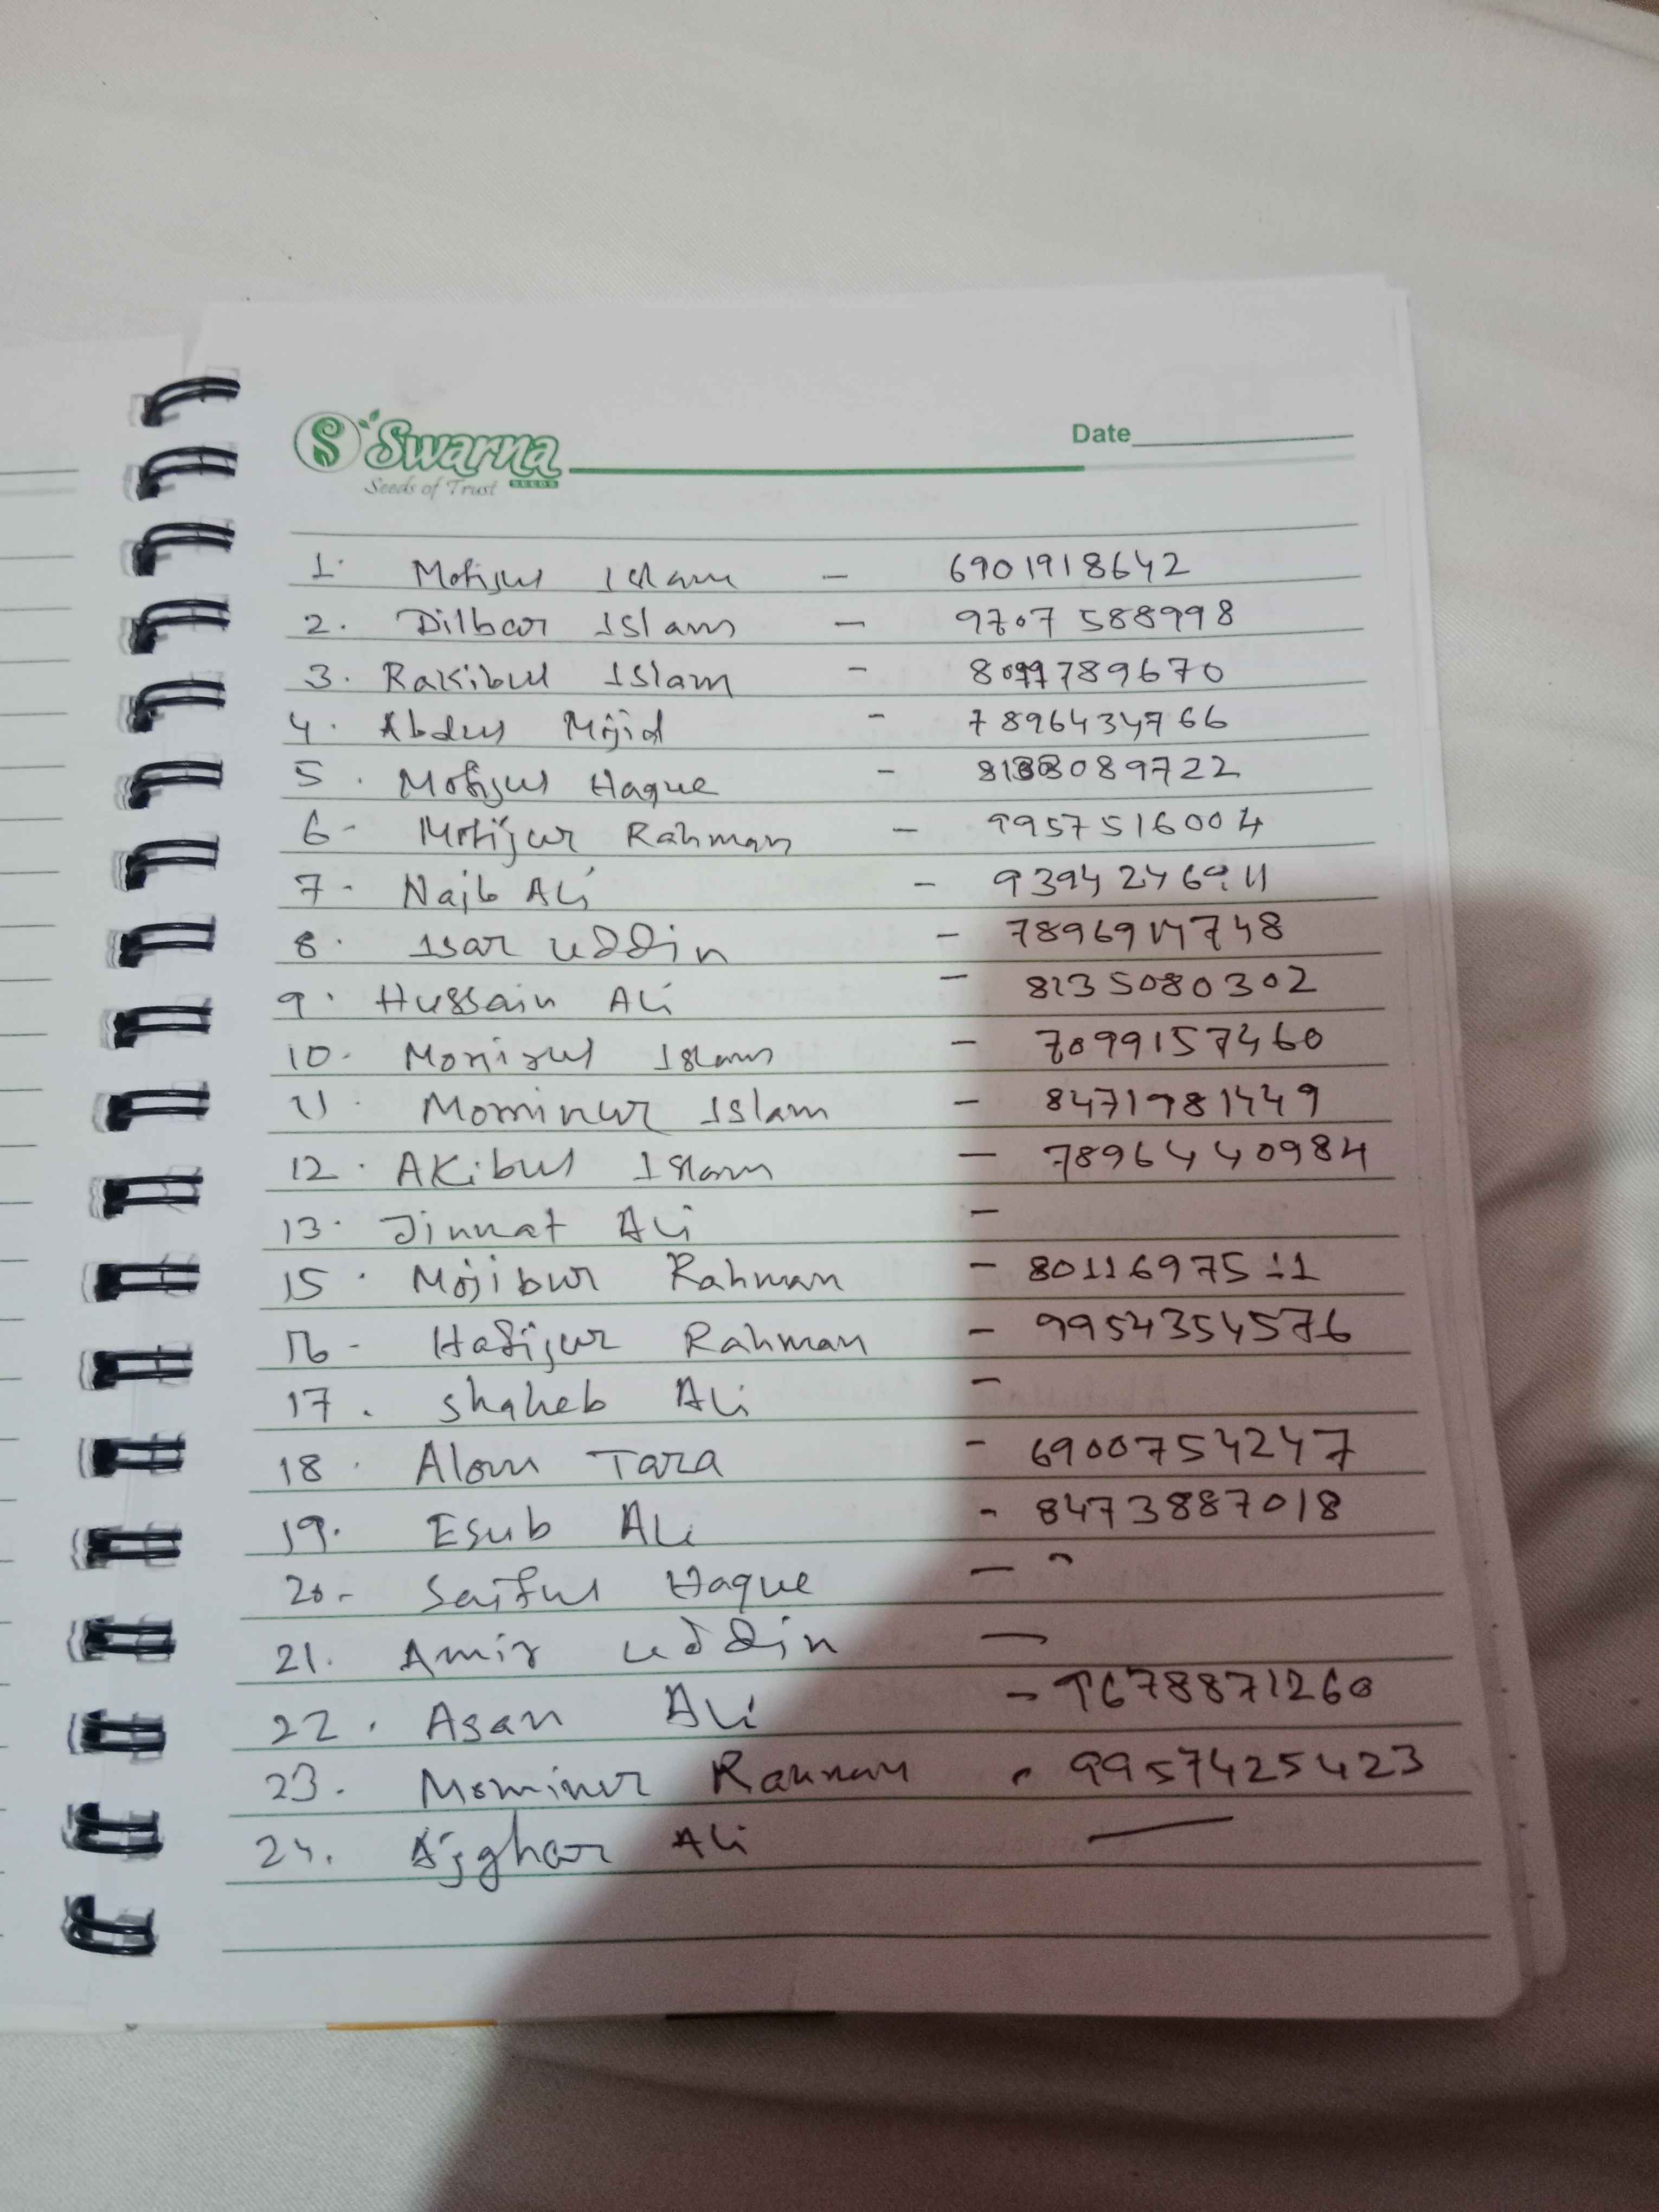 Swarna
Seeds of Trust SEEDS
Date
1. Mofijul Islam - 6901918642
2. Dilbar Islam - 9707588998
3. Rakibul Islam - 789670
4. Abdul Mijid - 7896434766
5. Mofijul Haque - 089722
6- Mofijur Rahman - 9957516004
7- Najb Ali -
8. Isar uddin -
9. Hussain Ali - 8135080302
10- Monirul Islam - 7099157460
11. Mominur Islam - 8471981449
12. Akibul Islam - 7896440984
13. Jinnat Ali -
15. Mojibur Rahman - 8011697511
16- Hafijur Rahman - 9954354576
17. Shaheb Ali -
18. Alom Tara - 6900754247
19. Esub Ali - 8473887018
20- Saiful Haque -
21. Amir uddin -
22. Asan Ali - 9678871260
23. Mominur Rahman - 9957425423
24. Ajghar Ali -